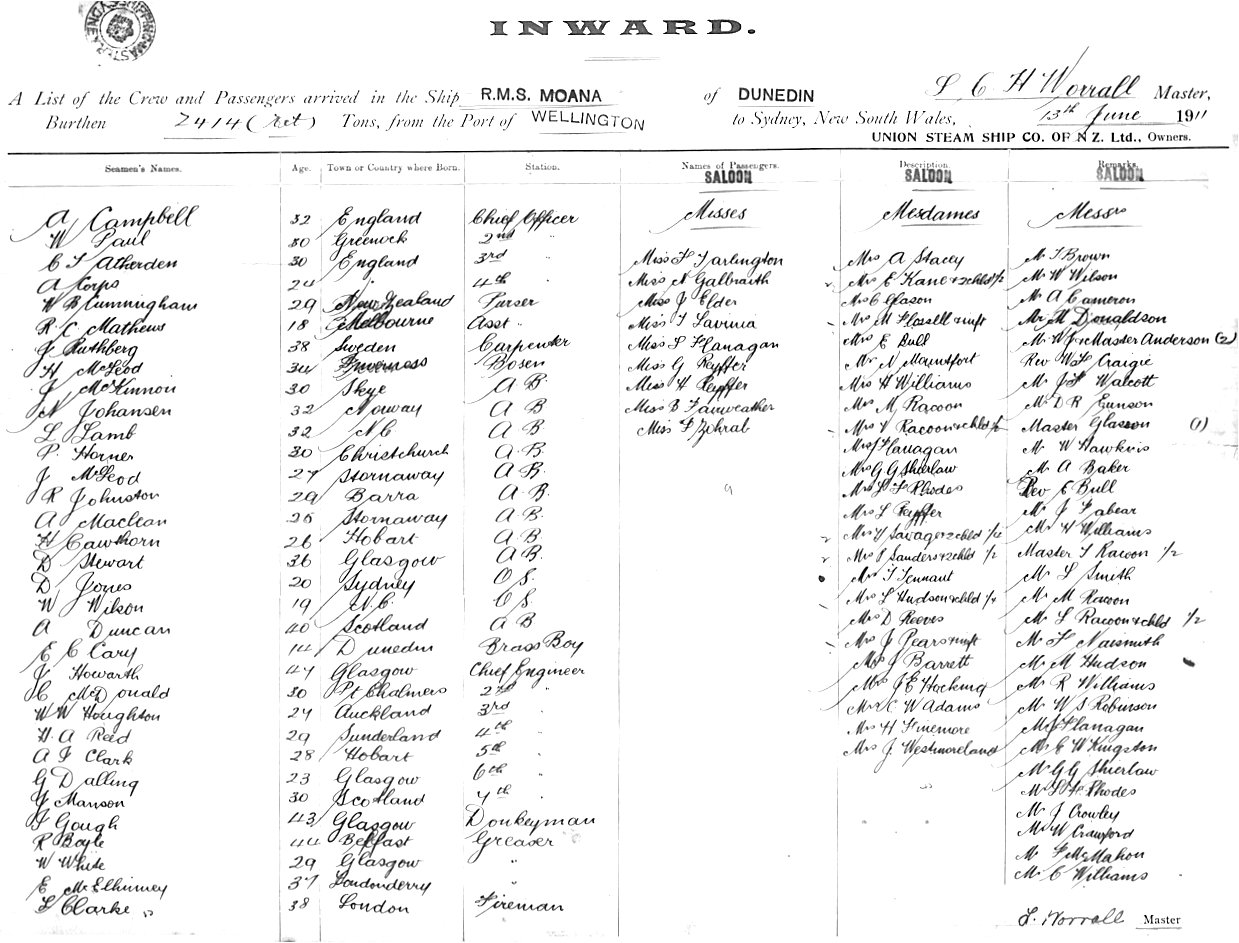 INWARD.
L C H Worrall Master,
A List of the Crew and Passengers arrived in the Ship R.M.S. MOANA of DUNEDIN
Burthen 2414 (Net) Tons, from the Port of WELLINGTON to Sydney, New South Wales, 13th June 1911
UNION STEAM SHIP CO. OF N.Z. Ltd., Owners.
Seamen's Names. Age. Town or Country where Born. Station. Names of Passengers. Description. Remarks.
SALOON SALOON SALOON
Misses Mesdames Messrs
A Campbell 32 England Chief Officer
W Paul 30 Greenock 2nd "
C T Atherden 30 England 3rd "
A Corps 24 " 4th "
W B Cunningham 29 New Zealand Purser
R C Mathews 18 Melbourne Asst "
J Ruthberg 38 Sweden Carpenter
H McLeod 34 Inverness Bosen
J McKinnon 30 Skye A B
N Johansen 32 Norway A B
L Lamb 32 N.C A B
P. Horner 30 Christchurch A B.
J McLeod 27 Stornaway A B.
R Johnston 29 Barra A B.
A Maclean 25 Stornaway A B.
H Cawthorn 26 Hobart A B.
D Stewart 36 Glasgow A B.
D Jones 20 Sydney O S.
W Wilson 19 N.C. O S
A Duncan 40 Scotland A B
E C Cary 14 Dunedin Brass Boy
J Howarth 47 Glasgow Chief Engineer
C McDonald 30 Pt Chalmers 2nd "
W W Houghton 27 Auckland 3rd "
H. A Reed 29 Sunderland 4th "
A F Clark 28 Hobart 5th "
G Dalling 23 Glasgow 6th "
J Manson 30 Scotland 7th "
T Gough 43 Glasgow Donkeyman
R Boyle 44 Belfast Greaser
W White 29 Glasgow "
E McElhinney 37 Londonderry "
L Clarke 38 London Fireman
Miss F Tarlington
Miss N Galbraith
Miss J Elder
Miss T Lavinia
Miss L Flanagan
Miss G Reyffer
Miss H Reyffer
Miss B Fairweather
Miss F Zohrab
9
Mrs A Stacey
Mrs E Kane & 2 chld 1/2
Mrs C Glason
Mrs M & inft
Mrs E Bull
Mrs N Mountfort
Mrs H Williams
Mrs M Racoon
Mrs V Racoon & chld 1/2
Mrs J Flanagan
Mrs G G Shierlaw
Mrs L F Rhodes
Mrs L Reyffer
Mrs Y Savage & 2 chld 1/2
Mrs P Sanders & 2 chld 1/2
Mrs T Tennant
Mrs L Hudson & chld 1/4
Mrs D Reeves
Mrs J Pears & inft
Mrs J Barrett
Mrs J E Hocking
Mrs C W Adams
Mrs H Finemore
Mrs J. Westmoreland
Mr T Brown
Mr W Wilson
Mr A Cameron
Mr M Donaldson
Mr W J & Master Anderson (2)
Rev W L Craigie
Mr J F Walcott
Mr D R Eunson
Master Glasson (1)
Mr W Hawkins
Mr A Baker
Rev E Bull
Mr J Fabear
Mr H Williams
Master T Racoon 1/2
Mr L Smith
Mr M Racoon
Mr L Racoon & chld 1/2
Mr F Naismith
Mr M Hudson
Mr R Williams
Mr W S Robinson
Mr J Flanagan
Mr E W Kingston
Mr G G Shierlaw
Mr L F Rhodes
Mr J Crowley
Mr W Crawford
Mr F McMahon
Mr C Williams
L. Worrall Master